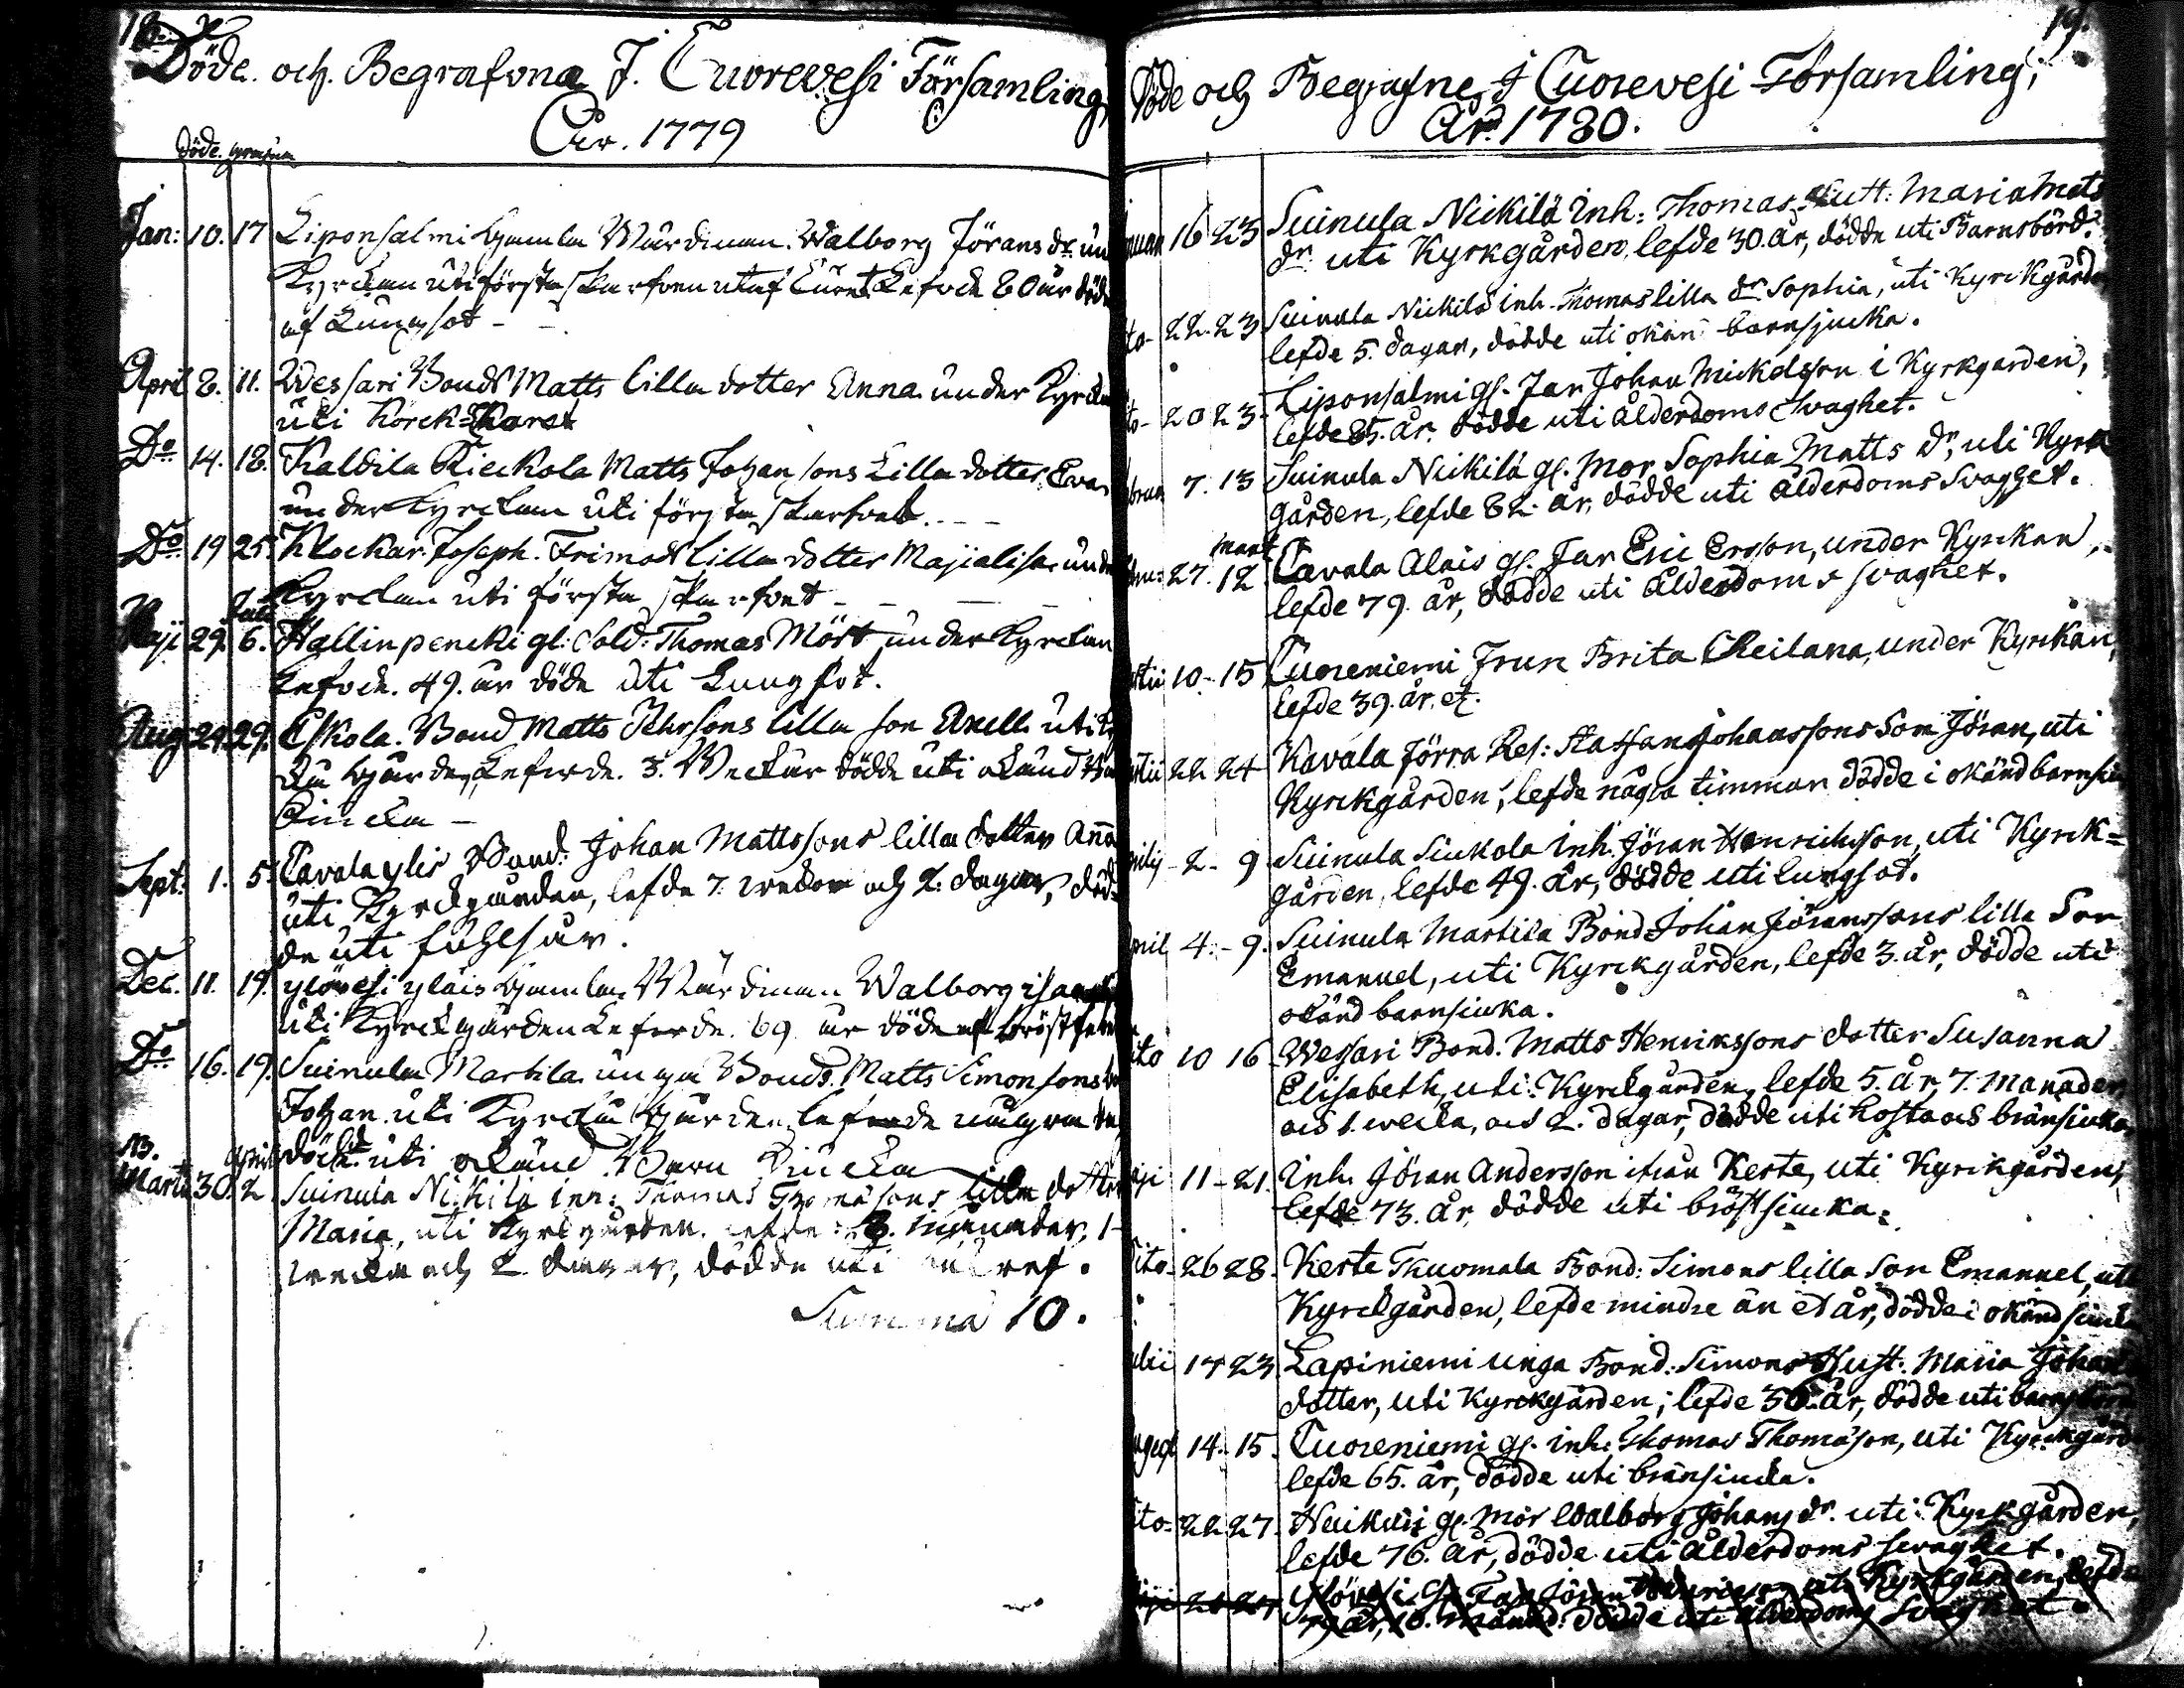 18.
Döde. och. Begrafvna J. Cuorevesi Församling,
Åhr. 1779
döde. begrafna
Jan: 10. 17 Liponsalmi Gamla Wärdinnan. Walborg Jörans dr. un
Kyrckan uti första skarfven utaf Curet Lefvde 80 år döde
af Lungsot
April 8. 11. Wessari Bonds Matts lilla dotter Anna under Kyrcka
uti Körck=Karet
Do 14. 18. Kaldila Kieckola Matts Johansons Lilla dotter Eva
under Kyrckan uti första skarfvet.
Do 19 25. Klockar. Joseph. Frimods lilla dotter Majialisa und
Kyrckan uti första skarfvet
Maji 29. Juli 6. Hallinpencki gl: Sold: Thomas Mört under Kyrckan
Lefvde. 49. år döde uti Lungsot.
Aug: 29. 29. Eskola. Bond Matts Jehrsons lilla son Anell uti
Gården, Lefvde. 3. Weckor dödde uti okänd
Siucka
Sept: 1. 5. Cavala ylis Bond: Johan Mattssons lilla dotter Anna
uti Kyrckgården, lefde 7. weckor och 2. dagar, död=
de uti
Dec. 11. 19. ylövesi yläis Gamla Wärdinnan Walborg
uti Kyrckgården Lefvde. 69 år döde af bröst
Do 16. 19. Suinula Martila unga Bonds Matts Simonsons
Johan uti Kyrcko Gården lefvde några
döde uti okänd Barn Siucka
NB.
Martii 30. April 2. Suinula Nickilä inh: Thomas Thomäsons lilla dotter
Maria, uti Kyrckgården. lefde: 8. månader, 1
wecka och 2 dagar, dödde uti
Summa 10.
19.
Döde och Begrafne J Cuorevesi Församling,
År 1780.
16 23 Suinula Nickilä Inh: Thomas Hust: Maria Mats
dr uti Kyrkgården, lefde 30. år, dödde uti Barnsbörd.
22. 23. Suinula Nickilä inh. Thomas lilla dr. Sophia, uti Kyrckgården
lefde 5. dagar, dödde uti okän barnsjucka.
20 23. Liponsalmi gl. Far Johan Mickelsson i Kyrkgården,
lefde 85. år. dödde uti ålderdoms Svaghet.
7. 13 Suinula Nickilä gl. Mor Sophia Matts dr, uti Kyrk
gården, lefde 82. år, dödde uti ålderdoms Svaghet.
27. mart 12 Cavala Alais gl. Far Eric Ersson, under Kyrckan,
lefde 79. år, dödde uti ålderdoms svaghet.
10. 15 Cuoreniemi Frun Brita Cheilana, under Kyrckan,
lefde 39. år, et.
22 24 Kavala Jörra Res: Staffan Johanssons Son Jöran, uti
Kyrckgården, lefde några timmar dödde i okänd
2. 9. Suinula Siukola inh. Jöran Henrichsson, uti Kyrck=
gården, lefde 49. år, dödde uti lungsot.
4. 9. Suinula Martila Bond Johan Jöranssons lilla Son
Emanuel, uti Kyrckgården, lefde 3. år, dödde uti
okänd barnsiucka.
10 16 Wessari Bond. Matts Henrikssons dotter Susanna
Elisabeth, uti Kyrckgården, lefde 5. år, 7. Månader
och 1. wecka, och 2. dagar, dödde uti hosta och bränsiucka
11. 21. Inh. Jöran Andersson ifrån Keste, uti Kyrckgården,
lefde 73. år, dödde uti bröstsiucka.
26 28. Keste Thuomala Bond: Simons lilla Son Emanuel, uti
Kyrckgården, lefde mindre än et år, dödde i okänd siucka
17 23 Lapiniemi unga Bond: Simons Hust. Maria Johans
dotter, uti Kyrckgården; lefde 36. år, dödde uti barnsbörd
14. 15. Cuoreniemi gl. inh: Thomas Thomäson, uti Kyrckgården
lefde 65. år, dödde uti bränsiucka.
22 27. gl. Mor Walborg Johans dr. uti Kyrkgården,
lefde 76. år, dödde uti ålderdoms swaghet.
ylövesi gl. Far Jöran uti Kyrkgården, lefde
79 år, 10. månad. dödde uti ålderdoms Svaghet.